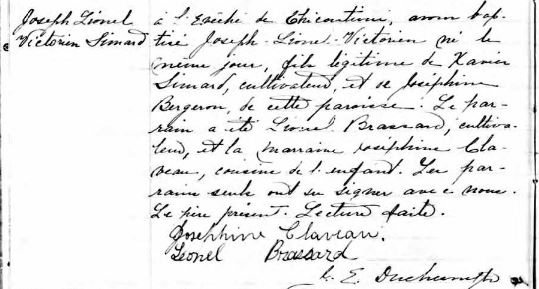 Joseph Lionel
Victorien Simard
à l'Évêché de Chicoutimi, avons bap-
tisé Joseph-Lionel-Victorien né le
même jour, fils légitime de Xavier
Simard, cultivateur, et de Joséphine
Bergeron, de cette paroisse. Le par-
rain a été Lionel Brassard, cultiva-
teur, et la marraine Joséphine Cla-
veau, cousine de l'enfant. Les par-
rains seuls ont su signer avec nous.
Le père présent. Lecture faite.
Josephine Claveau.
Lionel Brassard
E.